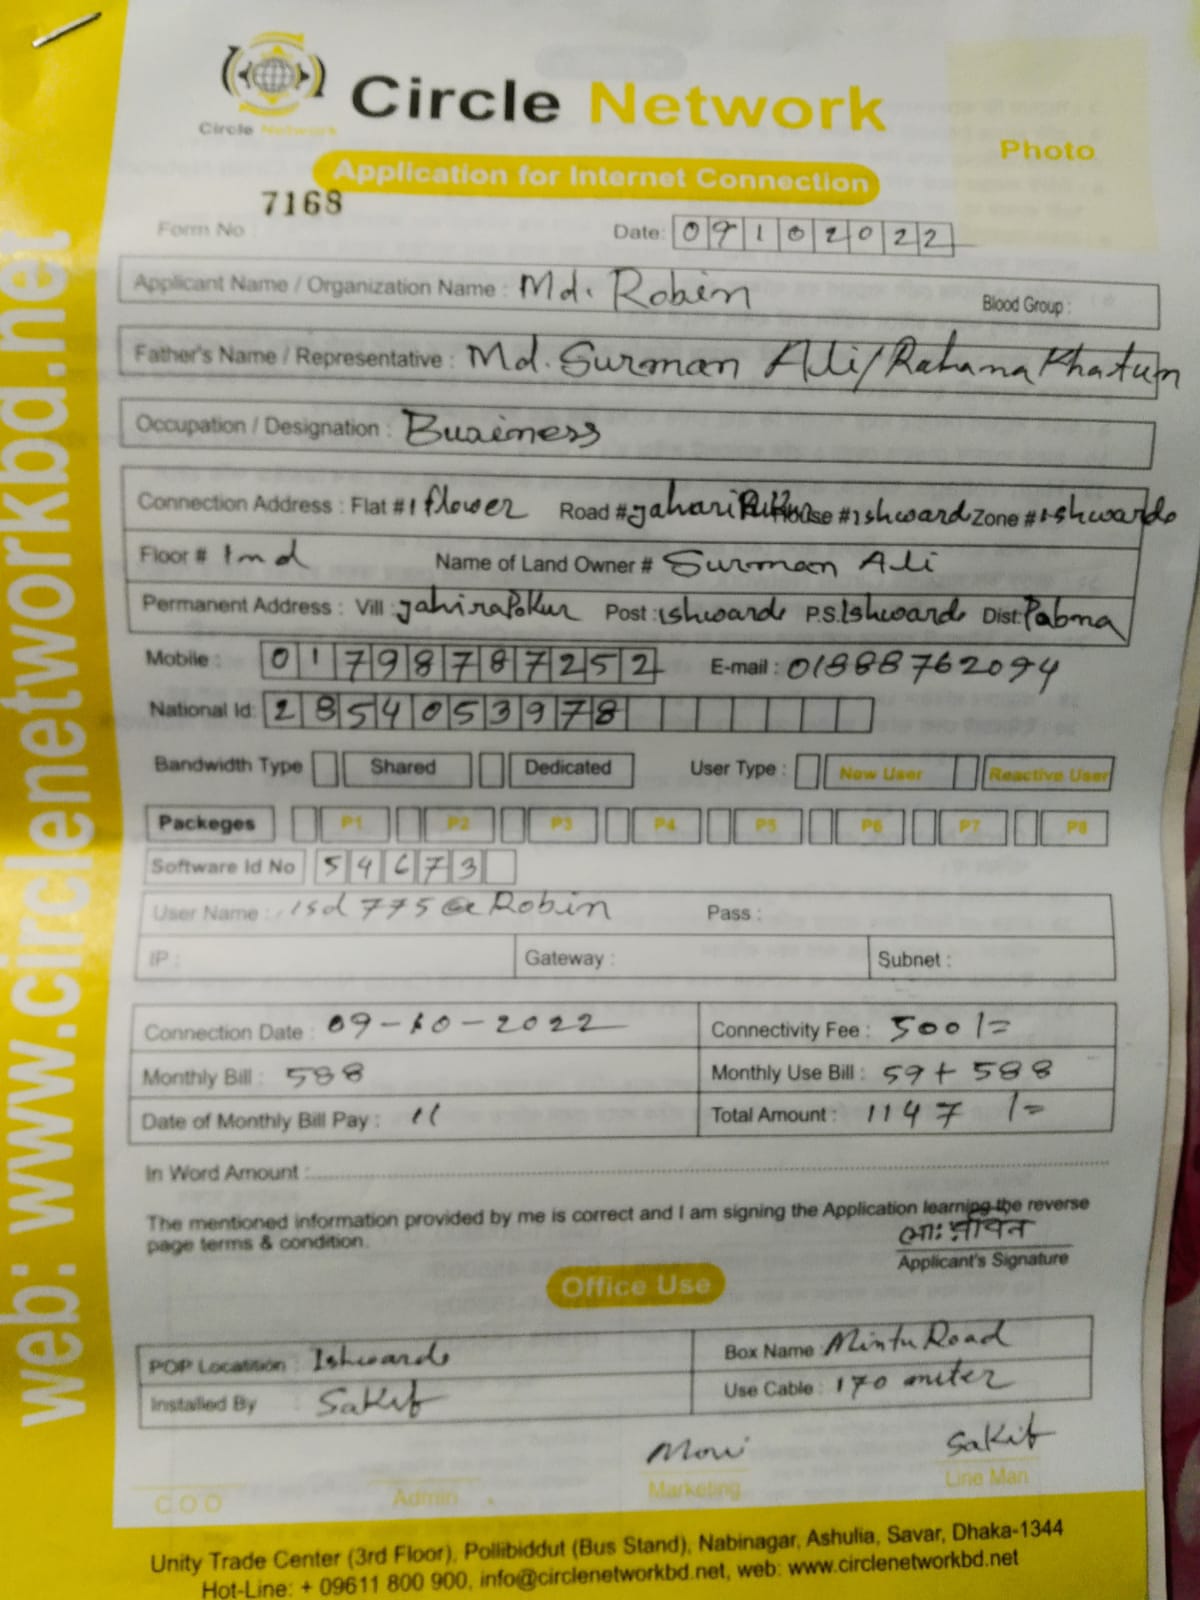 Circle Network
Circle Network
Photo
Application for Internet Connection
Form No : 7168
Date: 09102022
Applicant Name / Organization Name : Md. Robin Blood Group :
Father's Name / Representative : Md. Surman Ali/Rahana Khatun
Occupation / Designation : Business
Connection Address : Flat #1 flower Road # House #Ishwardi Zone #Ishwardi
Floor # 1nd Name of Land Owner # Surman Ali
Permanent Address : Vill : JahiraPokur Post :Ishwardi P.S.Ishwardi Dist:Pabna
Mobile : 01798787252 E-mail : 01888762094
National Id: 2854053978
Bandwidth Type Shared Dedicated User Type : New User Reactive User
Packeges P1 P2 P3 P4 P5 P6 P7 P8
Software Id No 54673
User Name : isd775@Robin Pass :
IP : Gateway : Subnet :
Connection Date : 09-10-2022 Connectivity Fee : 500/=
Monthly Bill : 588 Monthly Use Bill : 59+588
Date of Monthly Bill Pay : 11 Total Amount : 1147/=
In Word Amount :
The mentioned information provided by me is correct and I am signing the Application learning the reverse
page terms & condition.
Applicant's Signature
Office Use
POP Locatition : Ishwardi Box Name : Mintu Road
Installed By : Sakib Use Cable : 170 miter
C.O.O Admin Marketing Sakib Line Man
Unity Trade Center (3rd Floor), Pollibiddut (Bus Stand), Nabinagar, Ashulia, Savar, Dhaka-1344
Hot-Line: + 09611 800 900, info@circlenetworkbd.net, web: www.circlenetworkbd.net
web: www.circlenetworkbd.net